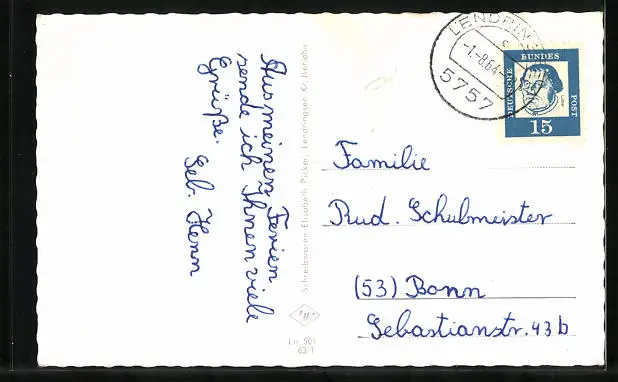 Aus meinen Ferien
sende ich Ihnen viele
Grüße.
Geb. Henn
Schreibwaren Elisabeth Picker, Lendringsen Kr. Iserlohn
Ln 501
63/1
LENDRINGS
-1.-8.64-
5757
DEUTSCHE
BUNDES
POST
15
Familie
Rud. Schulmeister
(53) Bonn
Sebastianstr. 43b